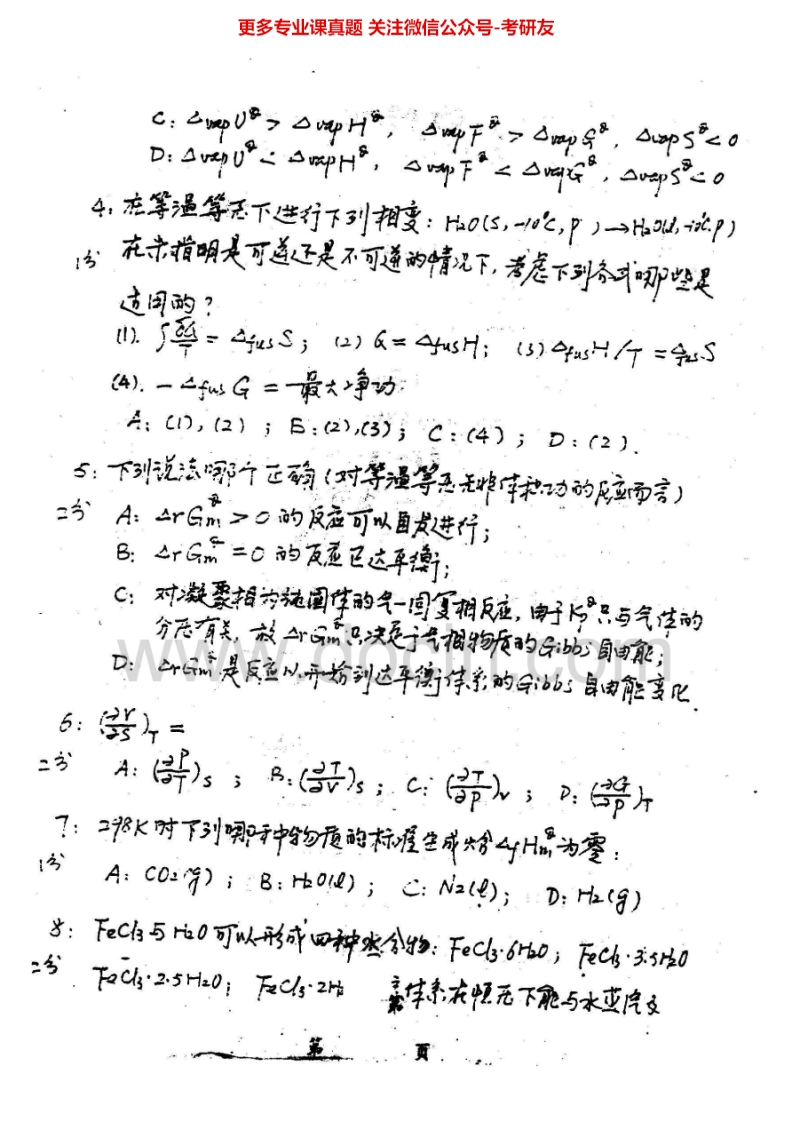 更多专业课真题 关注微信公众号-考研友
C: △vapU^θ > △vapH^θ, △vapF^θ > △vapG^θ, △vapS^θ < 0
D: △vapU^θ < △vapH^θ, △vapF^θ < △vapG^θ, △vapS^θ < 0
4: 在等温等压下进行下列相变: H2O(s, -10℃, p) → H2O(l, -10℃, p)
1分 在未指明是可逆还是不可逆的情况下, 考虑下列各式哪些是
适用的?
(1). ∫δQ/T = △fusS; (2) Q = △fusH; (3) △fusH/T = △fusS
(4). -△fusG = 最大净功
A: (1), (2); B: (2), (3); C: (4); D: (2).
5: 下列说法哪个正确(对等温等压无非体积功的反应而言)
二分 A: △rGm^θ > 0 的反应可以自发进行;
B: △rGm^θ = 0 的反应已达平衡;
C: 对凝聚相为纯固体的气—固复相反应, 由于Kp^θ只与气体的
分压有关, 故△rGm^θ只决定于气相物质的Gibbs自由能;
www.docin.com
D: △rGm^θ是反应从开始到达平衡体系的Gibbs自由能变化.
6: (∂V/∂S)T =
二分 A: (∂P/∂T)s; B: (∂T/∂V)s; C: (∂T/∂p)v; D: (∂G/∂p)T
7: 298K时下列哪种物质的标准生成焓△fHm^θ为零:
1分 A: CO2(g); B: H2O(l); C: N2(l); D: H2(g)
8: FeCl3与H2O可以形成四种水合物: FeCl3·6H2O; FeCl3·3.5H2O
二分 FeCl3·2.5H2O; FeCl3·2H2 体系在恒压下能与水蒸汽
第 页